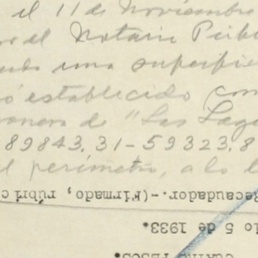 el 11 de Noviembre
el Notario Púb
una superfi
ó establecido com
de "Las Lag
89843.31-59323.8
el perímetro, a lo l
Recaudador.-(Firmado, rúbric
lo 5 de 1933.